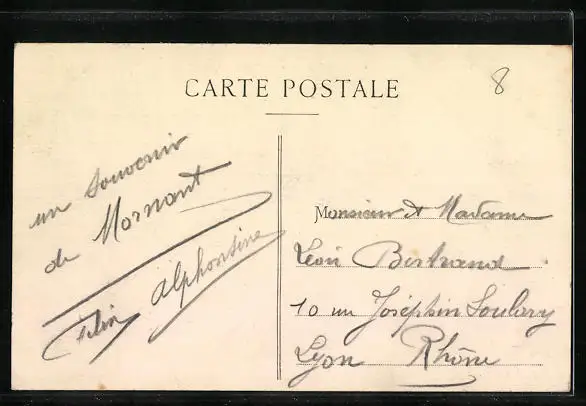 CARTE POSTALE
8
un souvenir
de Mornant
Alphonsine
Monsieur et Madame
Léon Bertrand
10 rue Joséphin Soulary
Lyon Rhône